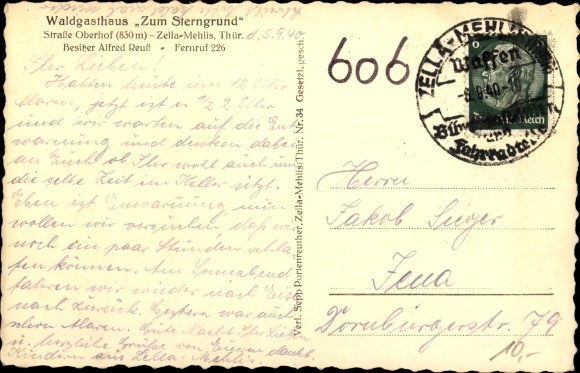 Waldgasthaus „Zum Sterngrund"
Straße Oberhof (850 m) – Zella-Mehlis, Thür.
Besitzer Alfred Reuß • Fernruf 226
d. 5.9.40.
Ihr Lieben!
Hatten heute um 12 Uhr
Alarm, jetzt ist es ½ 2 Uhr
und wir warten auf die Ent
warnung und denken dabei
an Euch ob Ihr wohl auch um
die selbe Zeit im Keller sitzt.
Eben ist Entwarnung, nun
wollen wir versuchen, daß wir
noch ein paar Stunden schla-
fen können. Am Sonnabend
fahren wir wieder nach
nach zurück. Gestern war auch
schon Alarm. Gute Nacht Ihr Lieben
u. herzliche Grüße von Euren dankb.
Kindern aus Zella-Mehlis.
Verl. Sepp Portenreuther, Zella-Mehlis/Thür. Nr. 34 Gesetzl. gesch.
606
ZELLA-MEHLIS
Waffen
.9.40.
Fahrräder
6
Deutsches Reich
Herrn
Jakob
Jena
Dornburgerstr. 79
10,-